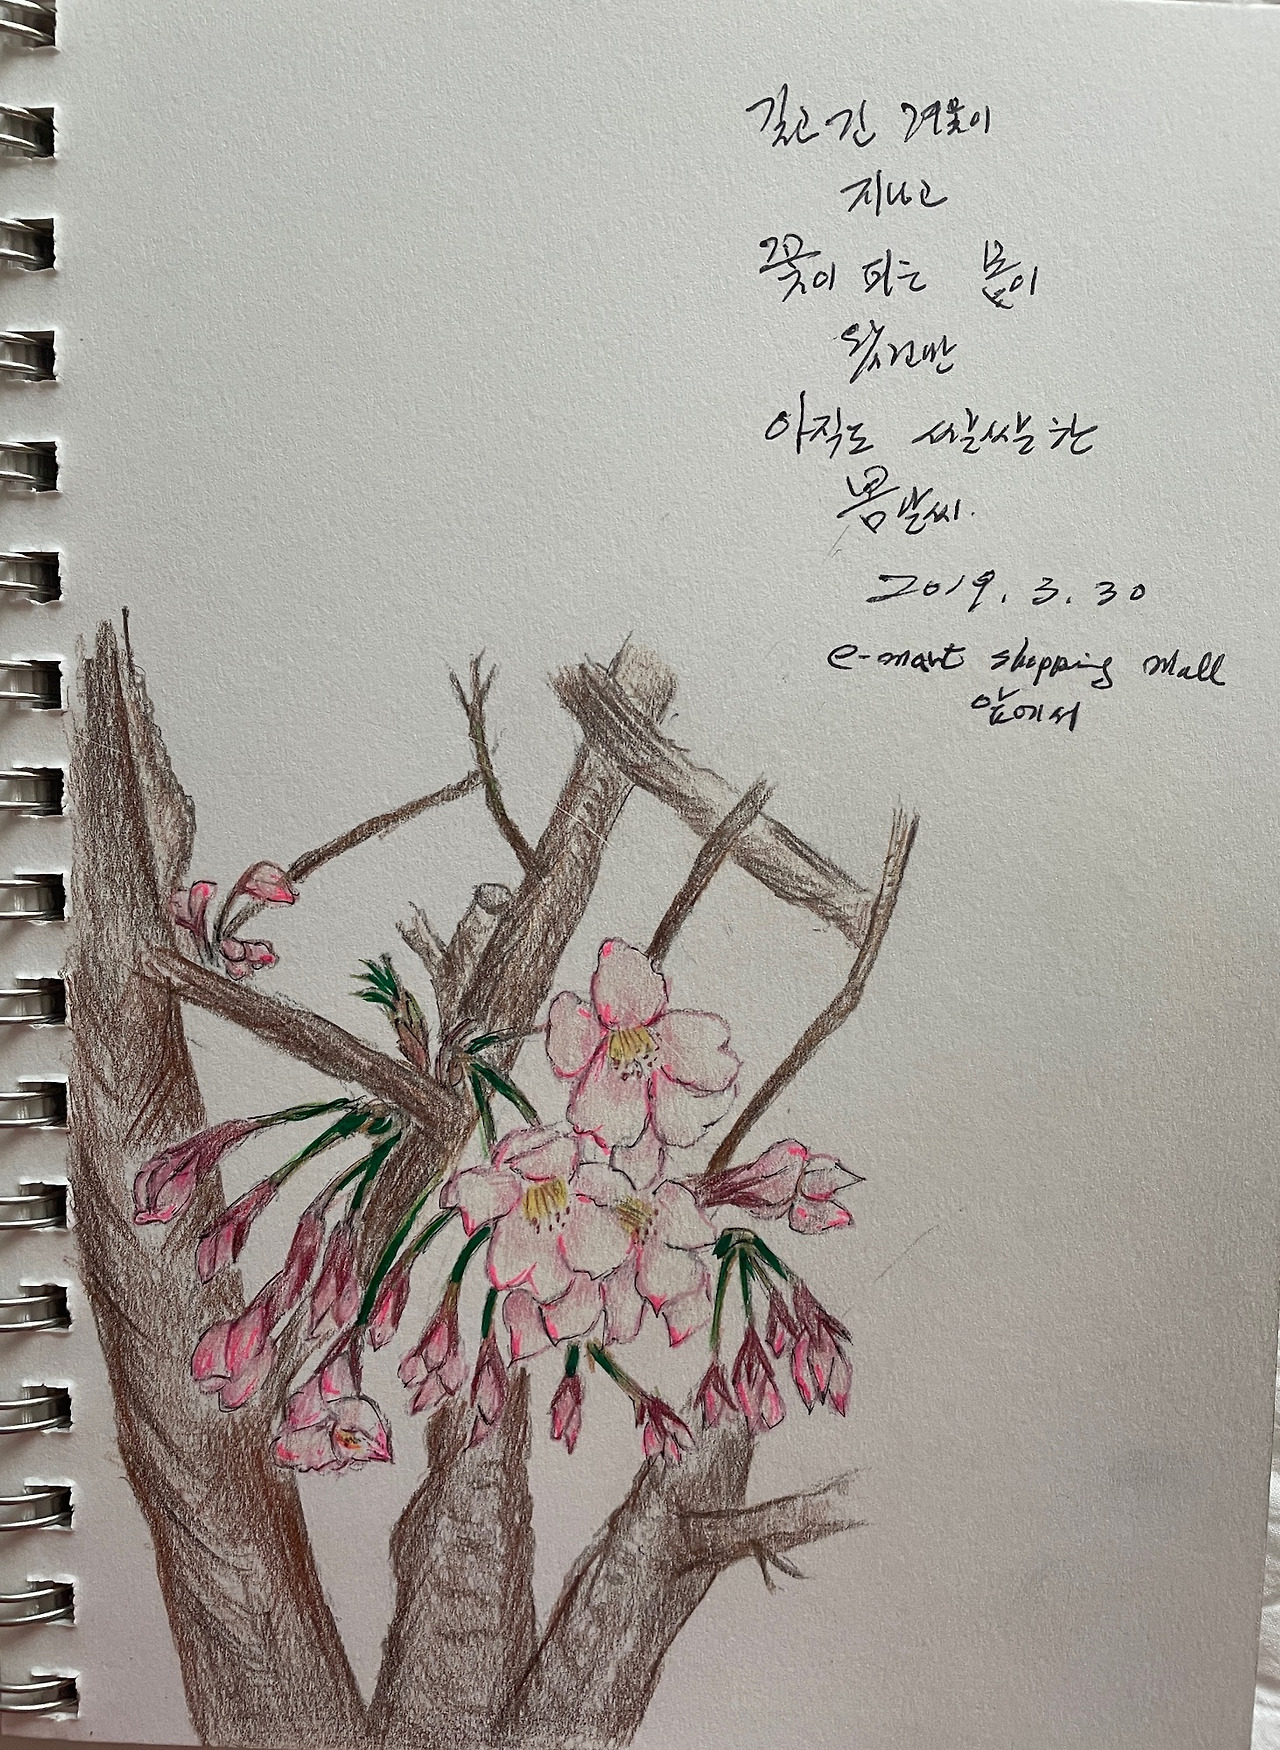 길고 긴 겨울이
지나고
꽃이 피는 봄이
왔건만
아직도 쌀쌀한
봄날씨.
2019. 3. 30
e-mart shopping Mall
앞에서